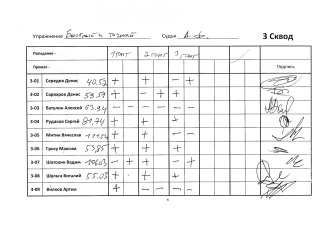 Упражнение Быстрый и точный Судья А. 3 Сквод
Попадание - 1 гонг 2 гонг 3 гонг
Промах - Подпись
3-01 Середев Денис 40.52 + + - +
3-02 Сарваров Денис 59.59 + - + +
3-03 Батулин Алексей 63.94 - - - -
3-04 Рудаков Сергей 81,74 + + +
3-05 Митин Вячеслав + + +
3-06 Греку Максим 53,85 + + +
3-07 Шатохин Вадим - + + - +
3-08 Щельга Виталий 55.03 + + +
3-09 Вилков Артем - - - -